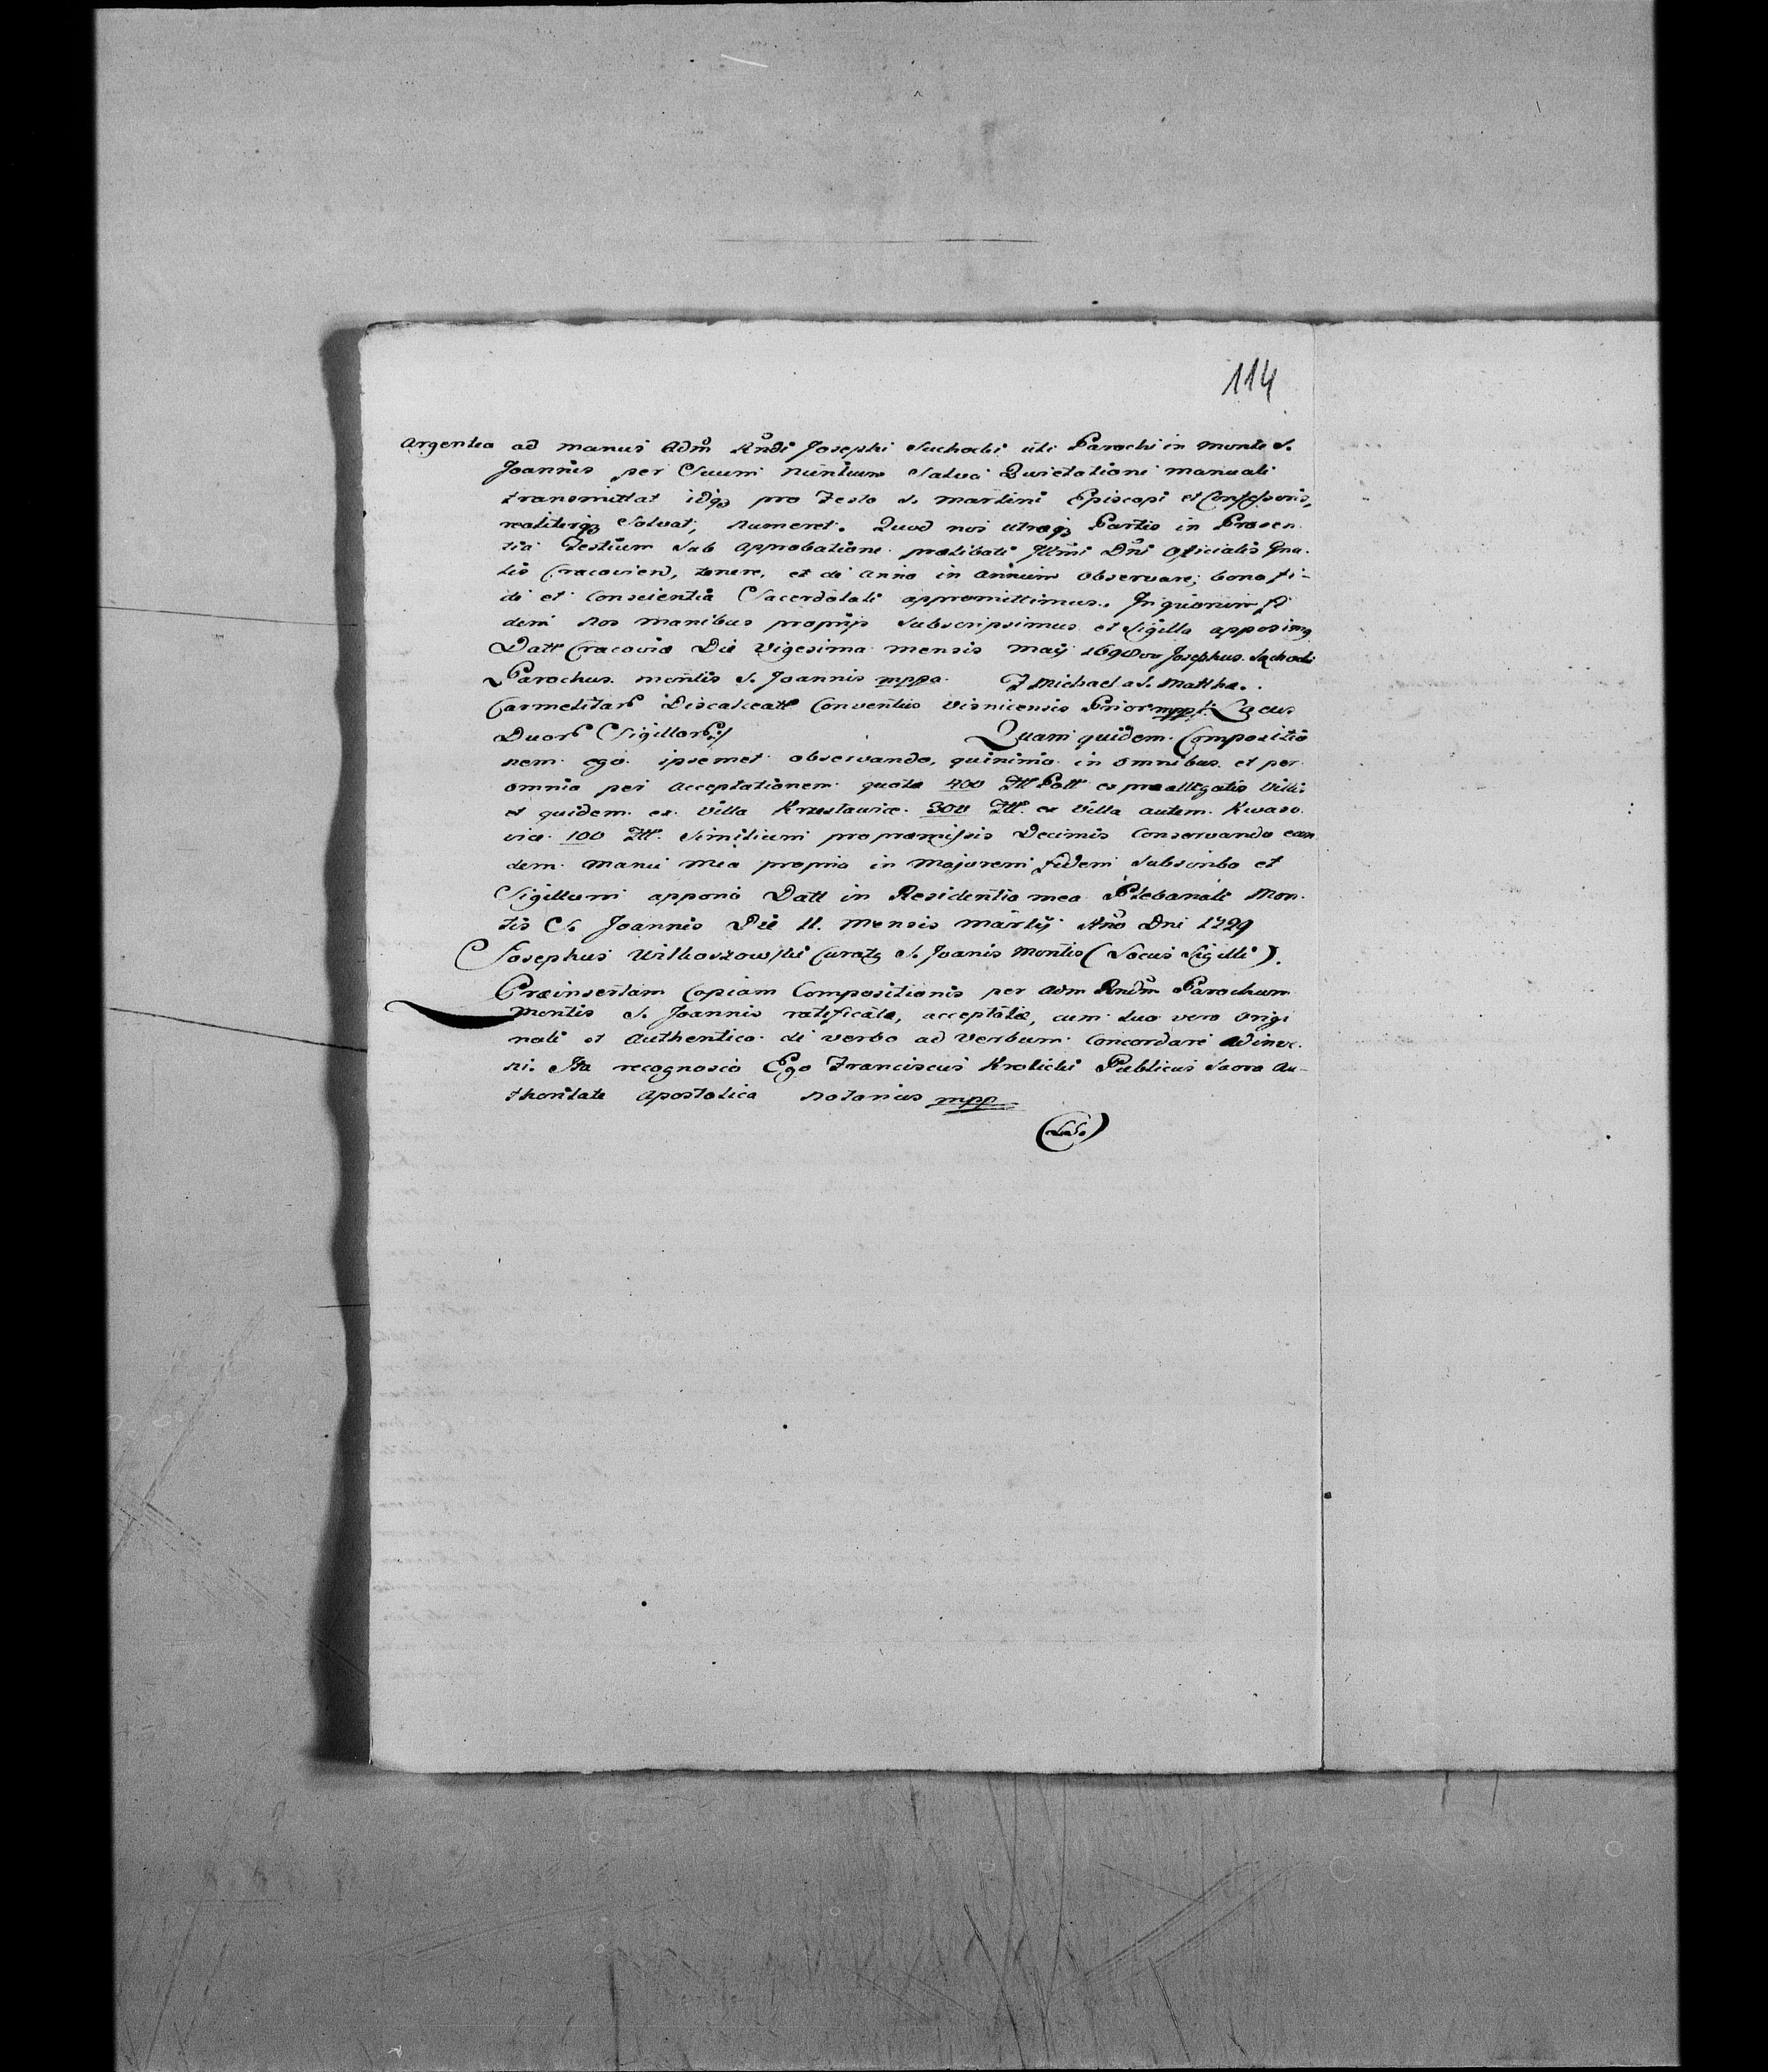 114
Argentea ad manus Adm Rndi Josephi Suchocki uti Parochi in Monte S.
Joannis per Suum Nuntium Salva Quietatione manuali
transmittat idq3 pro Festo S. Martini Episcopi et Confessoris,
realiterq3 Solvat, numeret. Quod nos utraq3 Partes in Præsen
tia Testium sub approbatione prælibati Illmi Dni Officialis Gna.
lis Cracovien, tenere, et de Anno in Annum observare; bona fi-
de et Conscientia Sacerdotali appromittimus. In quorum fi
dem Nos manibus propriis Subscripsimus et Sigilla apposimq
Datt Cracoviæ Die Vigesima mensis Maij 1698 Josephus Suchocki
Parochus montis S. Joannis mppa. F Michael a S. Matthæ.
Carmelitar Discalceatt Conventus Visnicensis Prior mpp Locus
Duor Sigillor
Quam quidem Compositio
nem ego ipsemet observando, quinimo in omnibus et per
omnia per acceptationem quota 400 Fll Poll ex præallegatis Villis
et quidem ex Villa Krzesławice 300 Fll. ex Villa autem Kwaso
vice 100 Fll. Similium pro præmissis Decimis Conservando ean
dem manu mea propria in Majorem fidem Subscribo et
Sigillum appono Datt in Residentia mea Plebanali Mon.
tis S. Joannis Die 11. Mensis Martij Ano Dni 1729
Josephus Wilkoszowski Curatq S. Joanis Montis (Locus Sigilli).
Præinsertam Copiam Compositionis per Adm Rndm Parochum
Montis S. Joannis ratificatæ, acceptatæ, cum suo vero Origi
nali et Authentico de verbo ad Verbum Concordare adinve.
ni. Ita recognosco Ego Franciscus Krolicki Publicus Sacra Au-
thoritate Apostolica Notarius mpp
(L.S.)